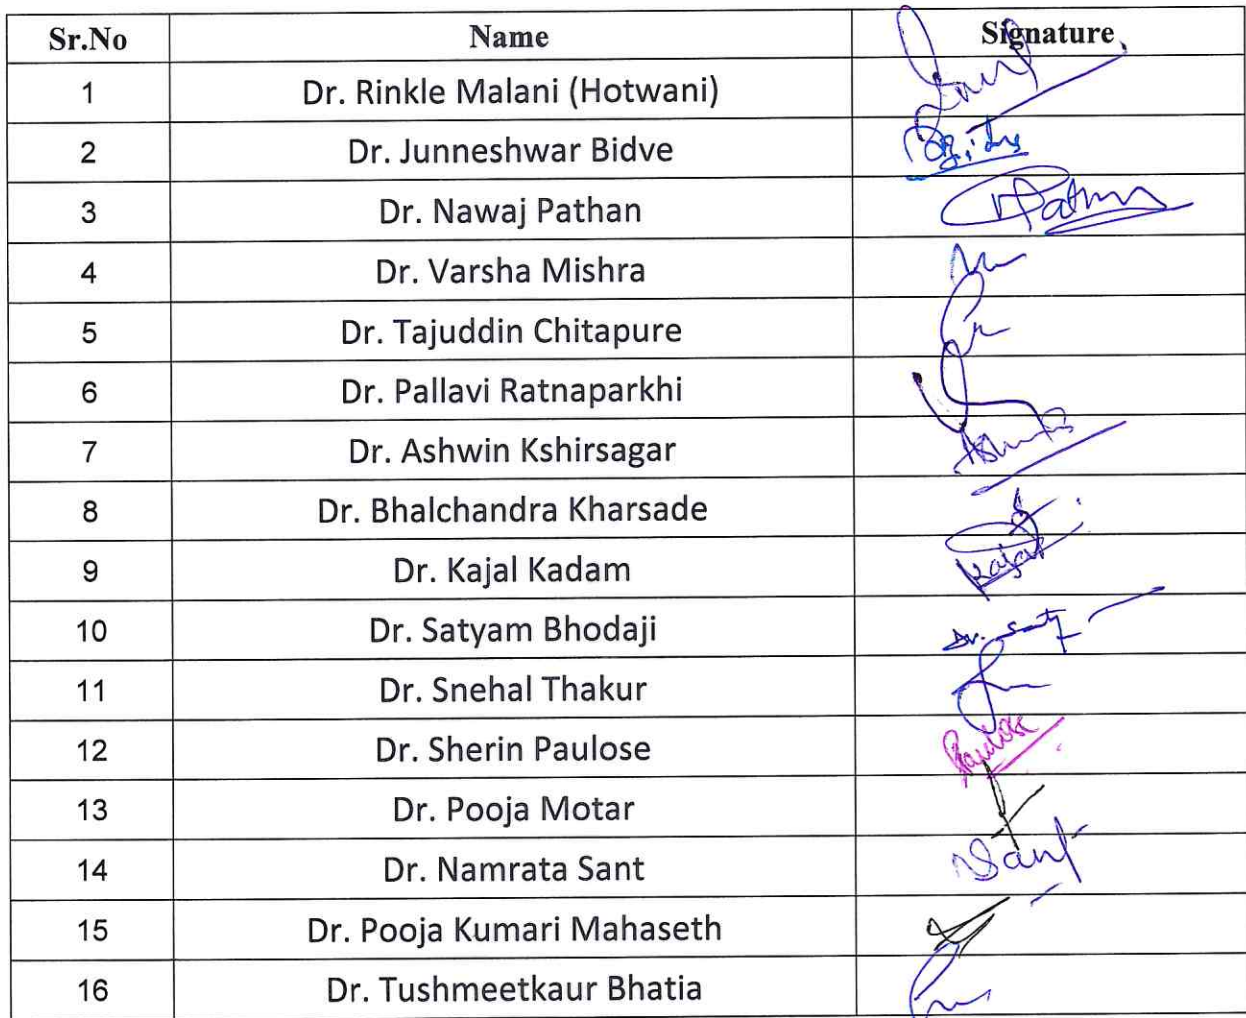 Sr.No Name Signature
1 Dr. Rinkle Malani (Hotwani)
2 Dr. Junneshwar Bidve
3 Dr. Nawaj Pathan
4 Dr. Varsha Mishra
5 Dr. Tajuddin Chitapure
6 Dr. Pallavi Ratnaparkhi
7 Dr. Ashwin Kshirsagar
8 Dr. Bhalchandra Kharsade
9 Dr. Kajal Kadam Kajal
10 Dr. Satyam Bhodaji Dr. Saty
11 Dr. Snehal Thakur
12 Dr. Sherin Paulose Paulose
13 Dr. Pooja Motar
14 Dr. Namrata Sant NSant
15 Dr. Pooja Kumari Mahaseth
16 Dr. Tushmeetkaur Bhatia